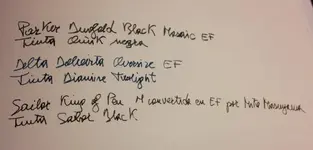 Parker Duofold Black Mosaic EF
Tinta Quink negra
Delta Dolcevita Oversize EF
Tinta Diamine Twilight
Sailor King of Pen M convertida en EF por Mike Masuyama
Tinta Sailor Black